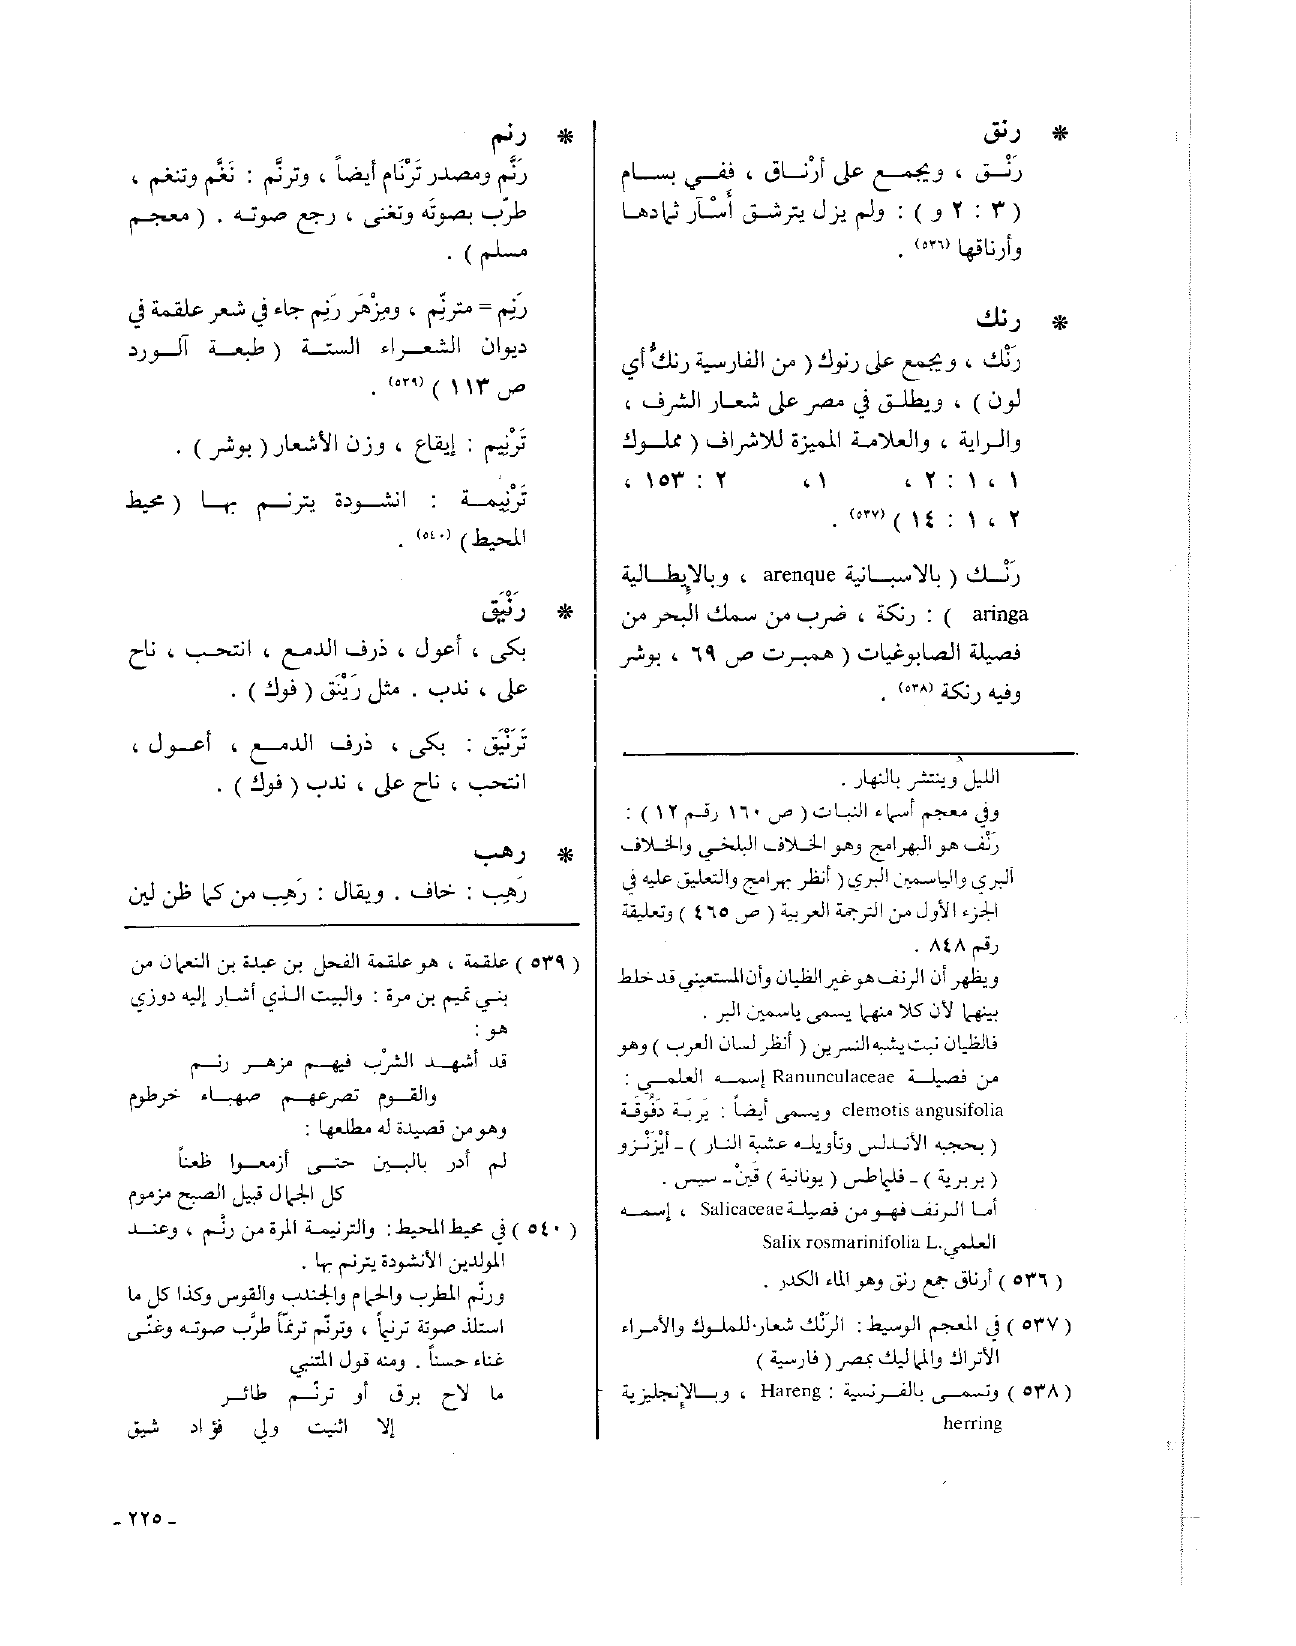 * رنق
رَنْق ، ويجمع على أرْناق ، ففي بسام
( ٣ : ٢ و ) : ولم يزل يترشق أسْآر ثمادها
وأرناقها (٥٣٦) .
* رنك
رَنْك ، ويجمع على رنوك ( من الفارسية رنك أي
لون ) ، ويطلق في مصر على شعار الشرف ،
والراية ، والعلامة المميزة للاشراف ( مملوك
١ ، ١ : ٢ ، ١، ٢ : ١٥٣ ،
٢ ، ١ : ١٤ ) (٥٣٧) .
رَنْك ( بالاسبانية arenque ، وبالإيطالية
aringa ) : رنكة ، ضرب من سمك البحر من
فصيلة الصابوغيات ( همبرت ص ٦٩ ، بوشر
وفيه رنكة (٥٣٨) .
الليل وينتشر بالنهار .
وفي معجم أسماء النبات ( ص ١٦٠ رقم ١٢ ) :
رَنْف هو البهرامج وهو الخلاف البلخي والخلاف
البري والياسمين البري ( أنظر بهرامج والتعليق عليه في
الجزء الأول من الترجمة العربية ( ص ٤٦٥ ) وتعليقة
رقم ٨٤٨ .
ويظهر أن الرنف هو غير الظيان وأن المستعيني قد خلط
بينهما لأن كلا منهما يسمى ياسمين البر .
فالظيان نبت يشبه النسرين ( أنظر لسان العرب ) وهو
من فصيلة Ranunculaceae إسمه العلمي :
clemotis angusifolia ويسمى أيضاً : يَربَة دَفُوقَة
( بعجمية الأندلس وتأويله عشبة النار ) ـ أيْزَنْزو
( بربرية ) ـ فليماطس ( يونانية ) قَينْ ـ سيس .
أما الرنف فهو من فصيلة Salicaceae ، إسمه
العلمي Salix rosmarinifolia L.
( ٥٣٦ ) أرناق جمع رنق وهو الماء الكدر .
( ٥٣٧ ) في المعجم الوسيط : الرَنْك شعار للملوك والأمراء
الأتراك والمماليك بمصر ( فارسية )
( ٥٣٨ ) وتسمى بالفرنسية : Hareng ، وبالإنجليزية
herring
* رنم
رَنَّم ومصدر تَرْنَام أيضاً ، وترنَّم : نَغَّم وتنغم ،
طرّب بصوته وتغنى ، رجع صوته . ( معجم
مسلم ) .
رَنِم = مترنّم ، ومِزْهَر رَنِم جاء في شعر علقمة في
ديوان الشعراء الستة ( طبعة آلورد
ص ١١٣ ) (٥٣٩) .
تَرْنِيم : إيقاع ، وزن الأشعار ( بوشر ) .
تَرْنِيمة : انشودة يترنم بها ( محيط
المحيط ) (٥٤٠) .
* رَنْيَق
بكى ، أعول ، ذرف الدمع ، انتحب ، ناح
على ، ندب . مثل رَيْنَق ( فوك ) .
تَرَنْيَق : بكى ، ذرف الدمع ، أعول ،
انتحب ، ناح على ، ندب ( فوك ) .
* رهب
رَهِب : خاف . ويقال : رَهِب من كما ظن لين
( ٥٣٩ ) علقمة ، هو علقمة الفحل بن عبدة بن النعمان من
بني تميم بن مرة : والبيت الذي أشار إليه دوزي
هو :
قد أشهد الشَرْب فيهم مزهر رنم
والقوم تصرعهم صهباء خرطوم
وهو من قصيدة له مطلعها :
لم أدر بالبين حتى أزمعوا ظعناً
كل الجمال قبيل الصبح مزموم
( ٥٤٠ ) في محيط المحيط : والترنيمة المرة من رنَّم ، وعند
المولدين الأنشودة يترنم بها .
ورنّم المطرب والحمام والجندب والقوس وكذا كل ما
استلذ صوتة ترنيماً ، وترنّم ترنماً طرَّب صوته وغنّى
غناء حسناً . ومنه قول المتنبي
ما لاح برق أو ترنّم طائر
إلا اثنيت ولي فؤاد شيق
ـ ٢٢٥ ـ